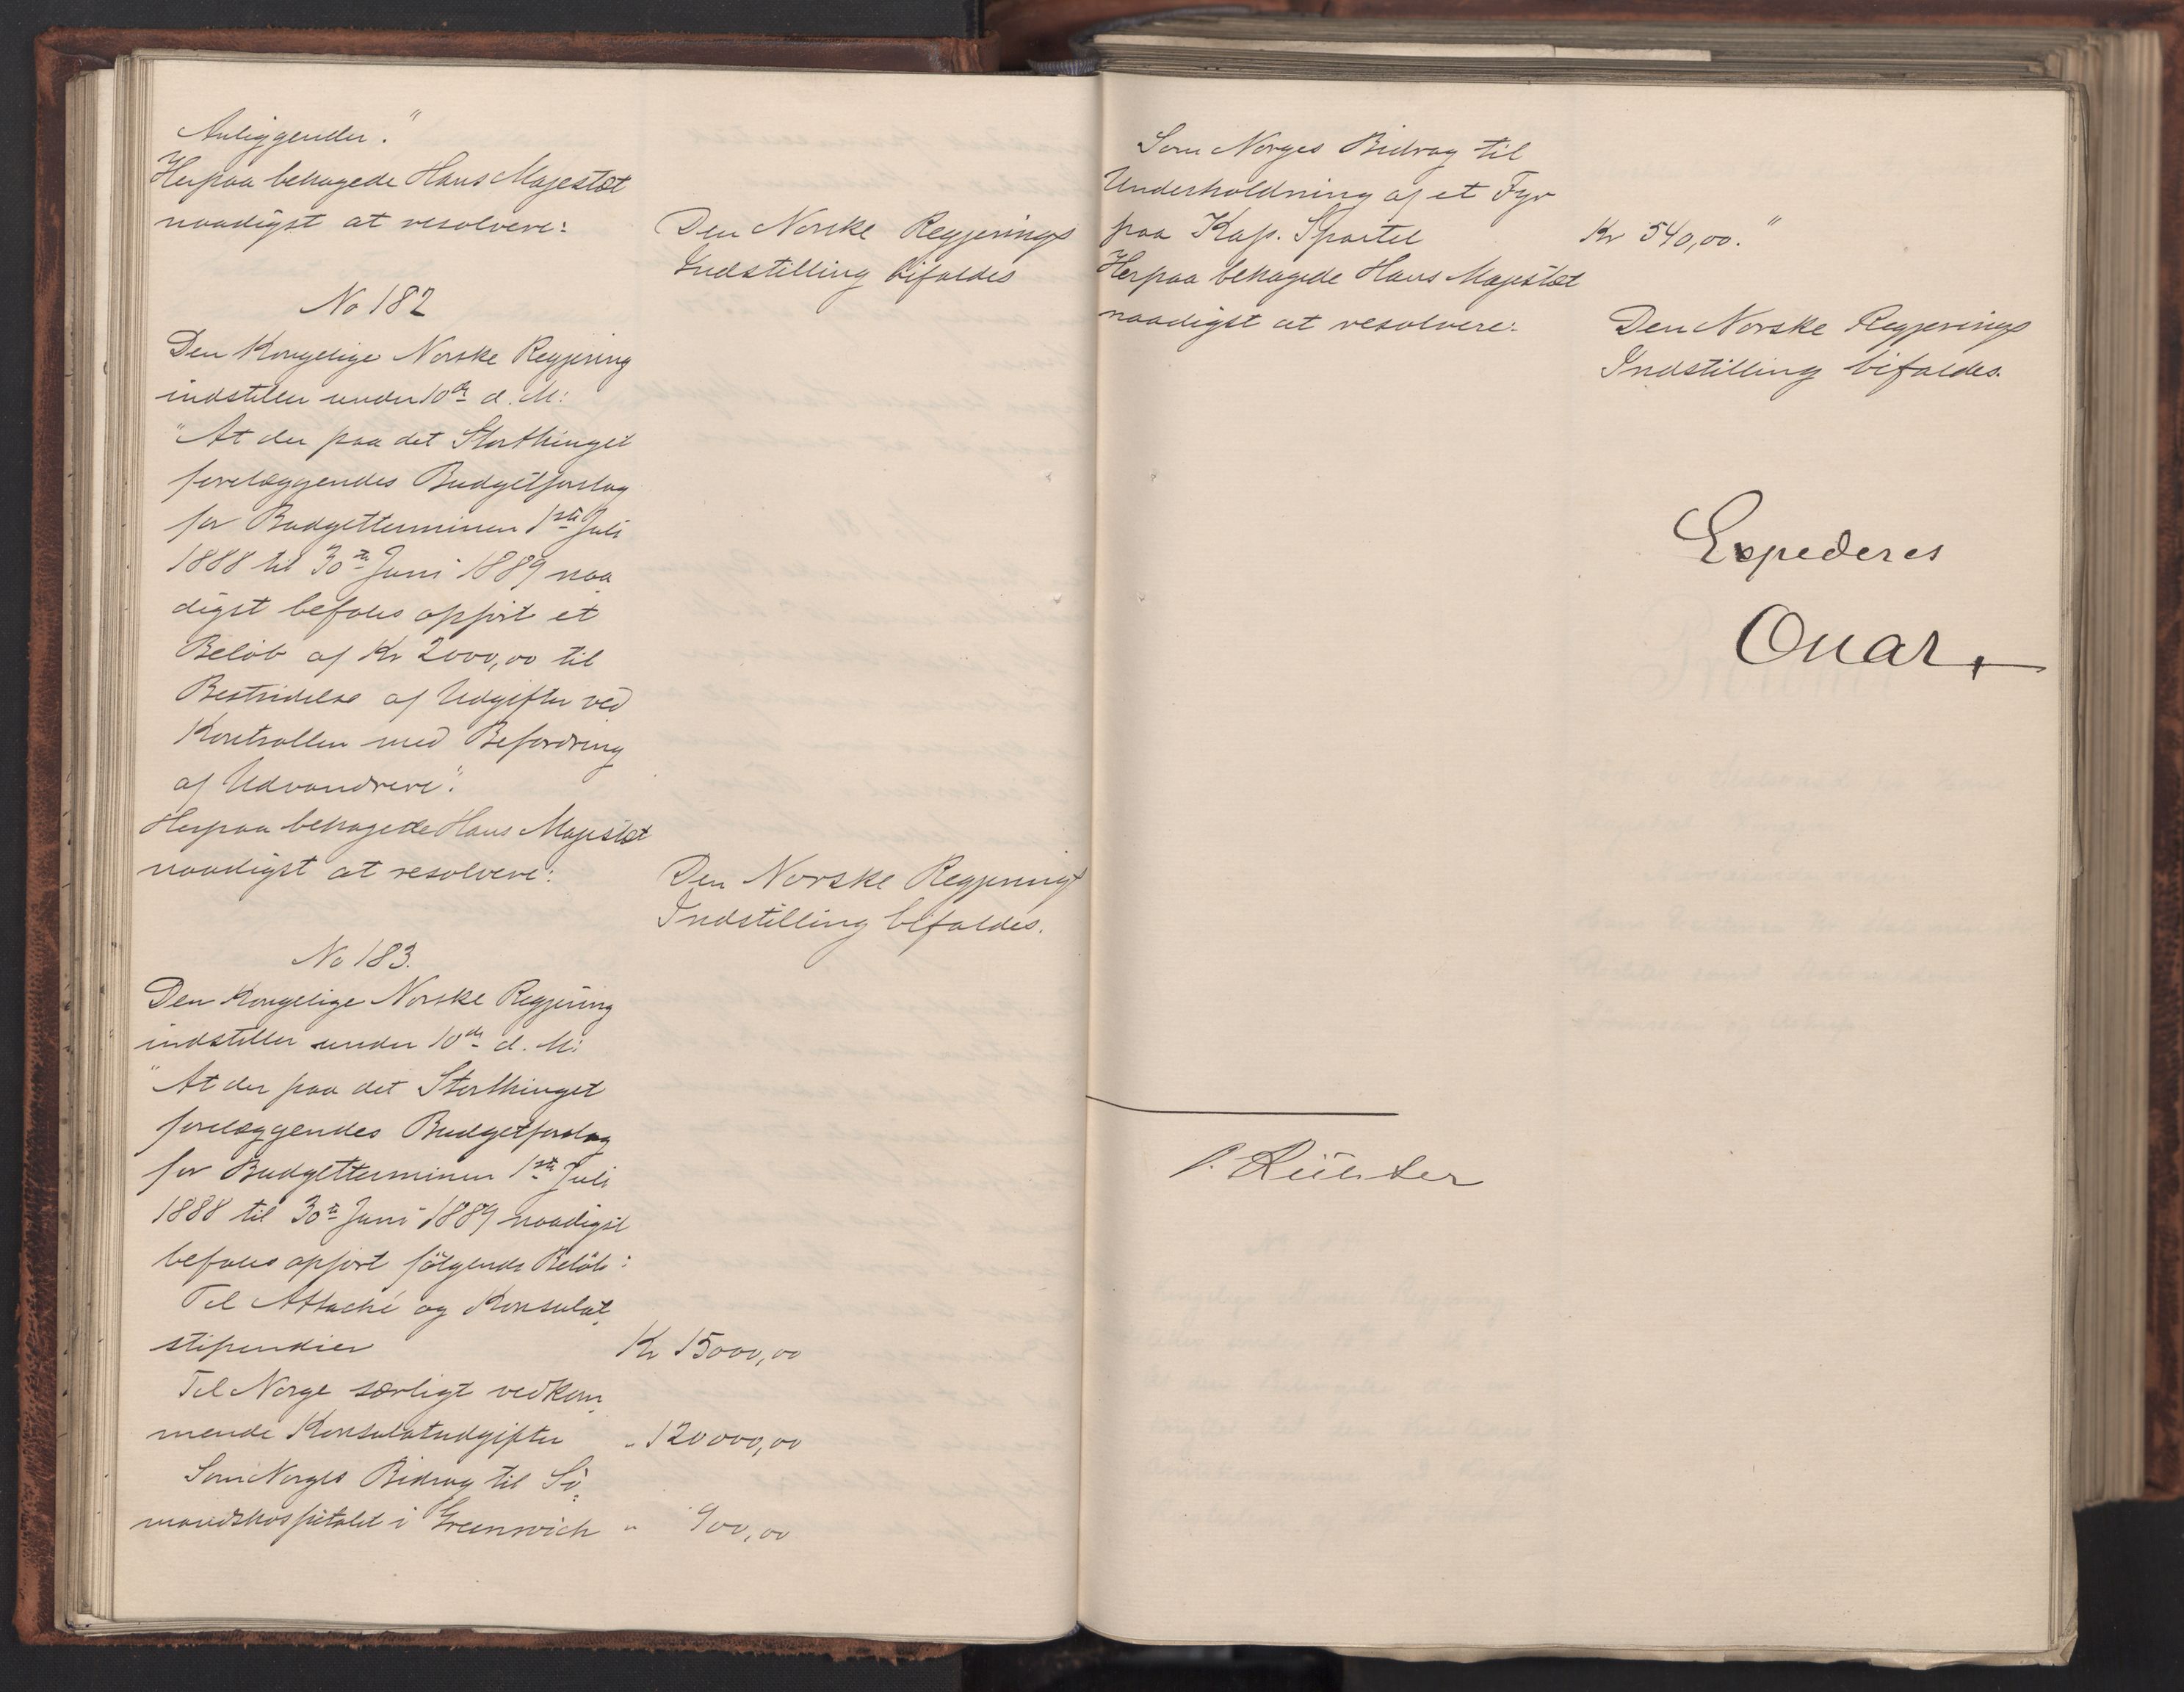 Anliggender."
Herpaa behagede Hans Majestæt
naadigst at resolvere:
Den Norske Regjerings
Indstilling bifaldes
No 182
Den Kongelige Norske Regjering
indstiller under 10de d. M:
"At der paa det Storthinget
forelæggendes Budgetforslag
for Budgetterminen 1ste Juli
1888 til 30te Juni 1889 naa
digst befales opført et
Beløb af Kr 2000,00 til
Bestridelse af Udgifter ved
Kontrollen med Befordring
af Udvandrere".
Herpaa behagede Hans Majestæt
naadigst at resolvere:
Den Norske Regjerings
Indstilling bifaldes.
No 183.
Den Kongelige Norske Regjering
indstiller under 10de d. M:
"At der paa det Storthinget
forelæggendes Budgetforslag
for Budgetterminen 1ste Juli
1888 til 30te Juni 1889 naadigst
befales opført følgende Beløb:
Til Attaché og Konsulat-
stipendier Kr 15000,00
Til Norge særligt vedkom-
mende Konsulatudgifter " 120000,00
Som Norges Bidrag til Sø-
mandshospitalet i Greenwich " 900,00
Som Norges Bidrag til
Underholdning af et Fyr
paa Kap. Spartel Kr 540,00."
Herpaa behagede Hans Majestæt
naadigst at resolvere:
Den Norske Regjerings
Indstilling bifaldes.
Expederes
Oscar